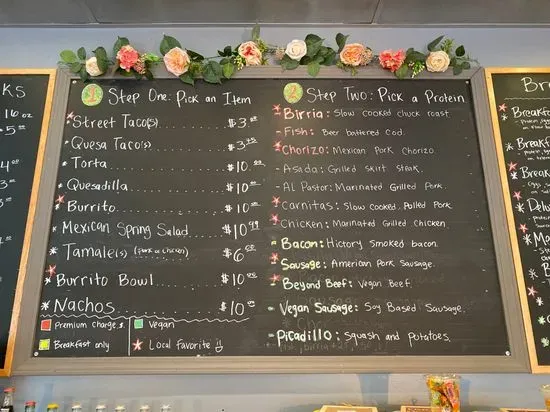 ks
16 oz
5
1
Step One: Pick an Item
* Street Taco(s) $3.00
* Quesa Taco(s) $3.75
* Torta $10.00
* Quesadilla $10.00
* Burrito $10.00
* Mexican Spring Salad $10.99
* Tamale(s) (Pork or Chicken) $6.00
* Burrito Bowl $10.00
* Nachos $10.00
Premium charge $
Vegan
Breakfast only
Local favorite
2
Step Two: Pick a Protein
- Birria: Slow cooked chuck roast.
- Fish: Beer battered cod.
- Chorizo: Mexican Pork Chorizo.
- Asada: Grilled skirt steak.
- Al Pastor: Marinated Grilled Pork.
- Carnitas: Slow cooked, Pulled Pork.
- Chicken: Marinated Grilled Chicken
- Bacon: Hictory smoked bacon.
- Sausage: American Pork Sausage.
- Beyond Beef: Vegan Beef.
- Vegan Sausage: Soy Based Sausage.
- Picadillo: squash and potatoes.
Br
* Breakfast
* Breakf
* Break
* Delu
* Break